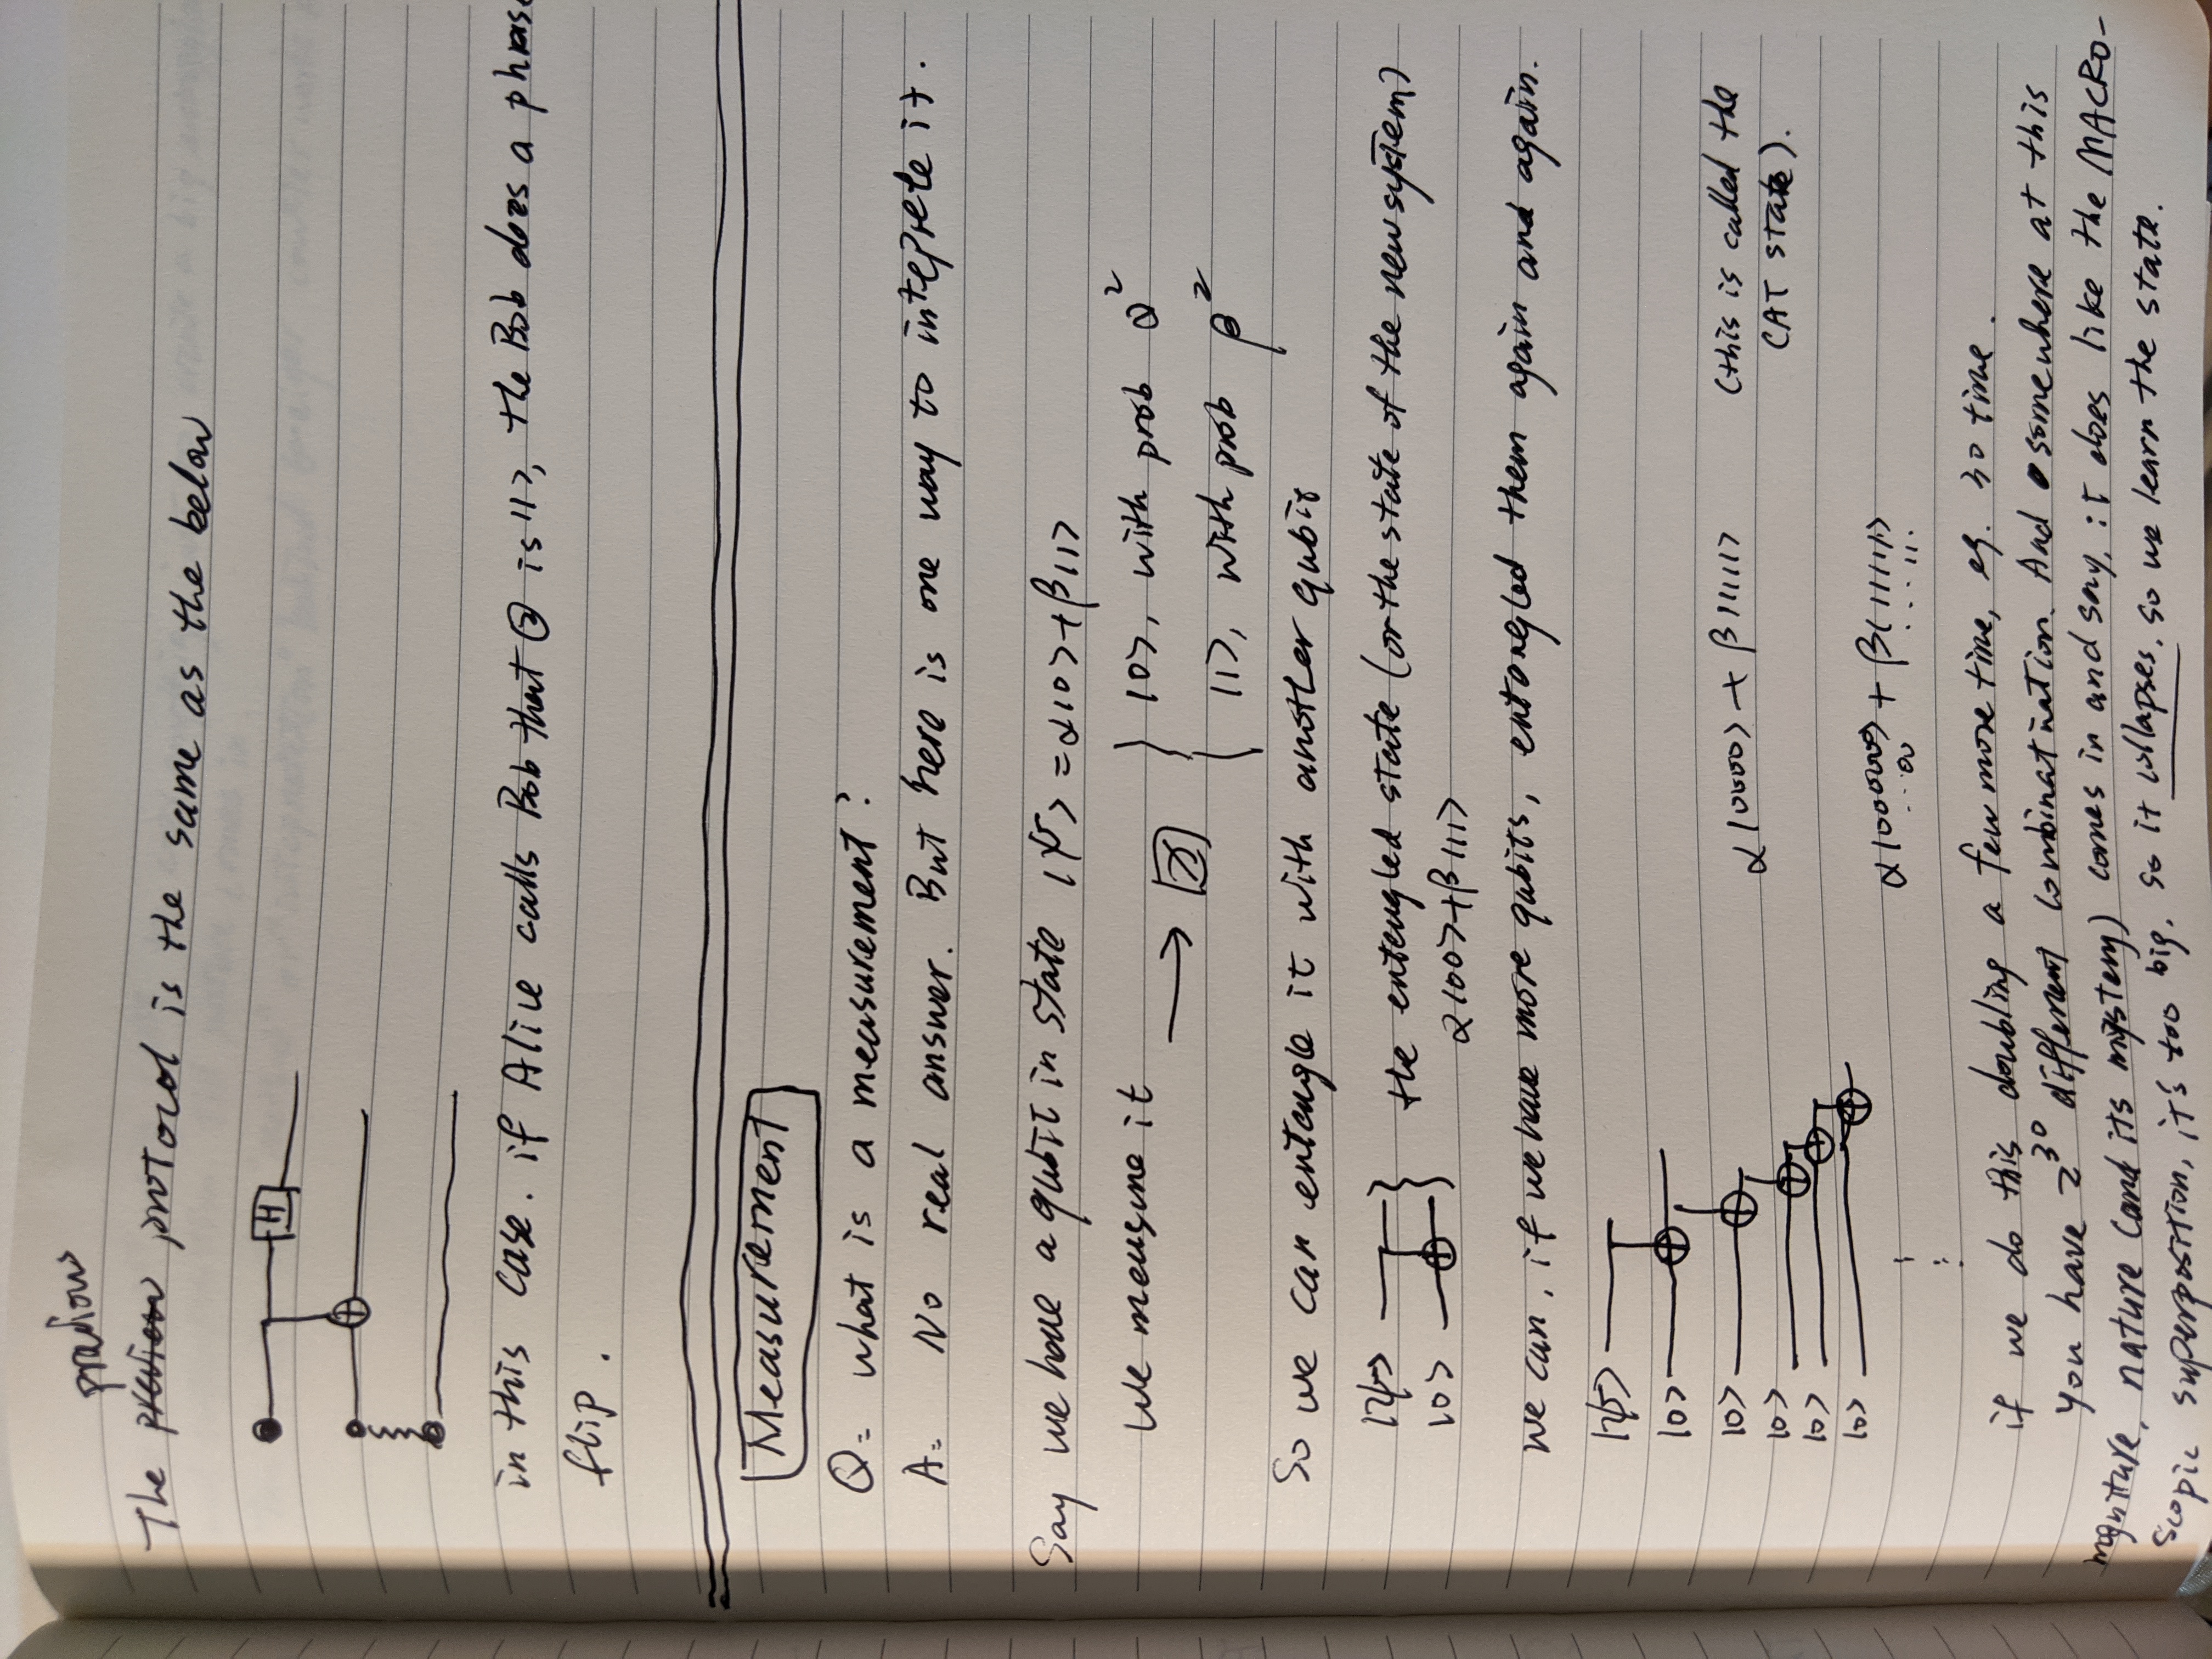 previous
The preview protocol is the same as the below
H
in this case. if Alice calls Bob that ② is |1>, the Bob does a phrase
flip.
Measurement
Q: what is a measurement?
A: No real answer. But here is one way to inteprete it.
Say we have a qubit in state |ψ> = α|0>+β|1>
We measure it → |0>, with prob α²
|1>, with prob β²
So we can entangle it with another qubit
|ψ> the entengled state (or the state of the new system)
|0> α|00>+β|11>
we can, if we have more qubits, entangled them again and again.
|ψ>
|0>
|0> α|0000> + β|1111> (this is called the
|0> CAT state).
|0>
|0>
α|000000> + β|11111>
...00 ....11.
if we do this doubling a few more time, eg. 30 time.
You have 2³⁰ different combinatination. And somewhere at this
magniture, nature (and its mystery) comes in and say, it does like the MACRO-
scopic superposition, it's too big, so it collapses, so we learn the state.